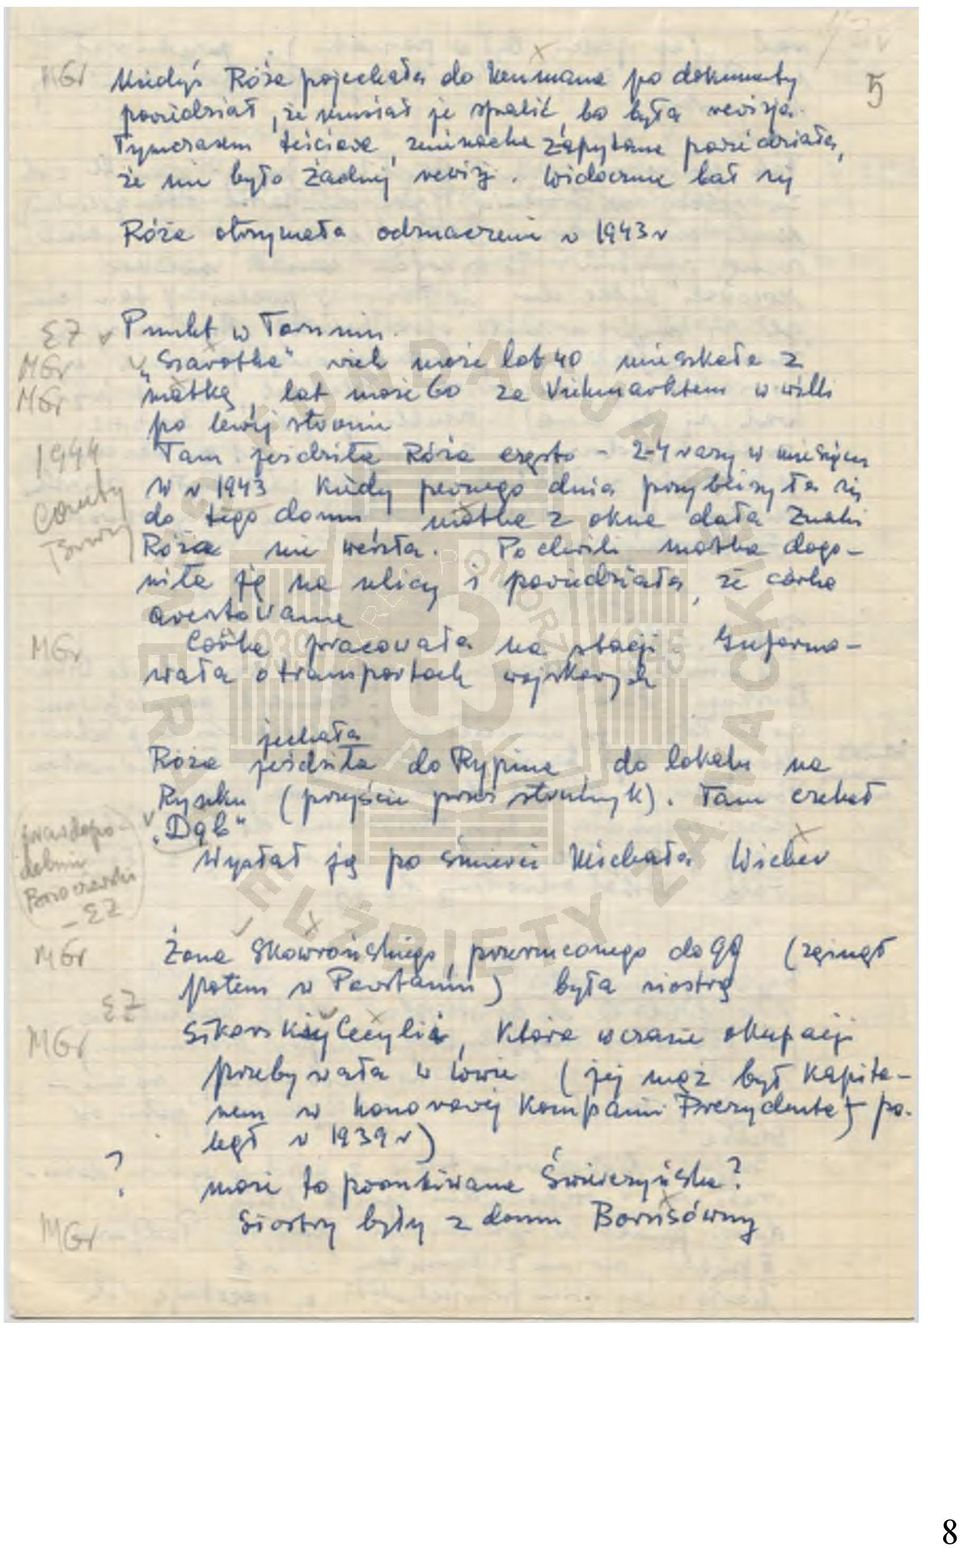 5
MGr Kiedyś Róża pojechała do Neumana po dokumenty
powiedział, że musiał je spalić, bo była rewizja.
Tymczasem teściowa, zapytana powiedziała,
że nie było żadnej rewizji. Widocznie bał się
Róża otrzymała odznaczenie w 1943 r
EZ v Punkt w Toruniu.
MGr v „Szarotka" wiek może lat 40 mieszkała z
MGr matką, lat może 60 za Viehmarktem w willi
po lewej stronie
1944 Tam jeździła Róża często - 2-4 razy w miesiącu
W r 1943 Kiedy pewnego dnia przybliżyła się
do tego domu, matka z okna dała znaki
Róża nie weszła. Po chwili matka dogo-
niła ją na ulicy i powiedziała, że córka
aresztowana
MGr Córka pracowała na stacji Informo-
wała o transportach wojskowych
jechała
Róża jeździła do Rypina, do lokalu na
Rynku (przejście przez). Tam czekał
v „Dąb"
prawdopo-
dobnie
- EZ
Wysłał ją po śmierci Michała Wicher
MGr Żona Skowrońskiego, przerzuconego do GG (zginął
potem w Powstaniu) była siostrą
EZ
MGr Sikorskiej Cecylii, która w czasie okupacji
przebywała w (jej mąż był kapita-
nem w honorowej Kompanii Prezydenta - po-
legł w 1939 r)
? może to poszukiwana Świerczyńska?
MGr Siostry były z domu Borisówny
8